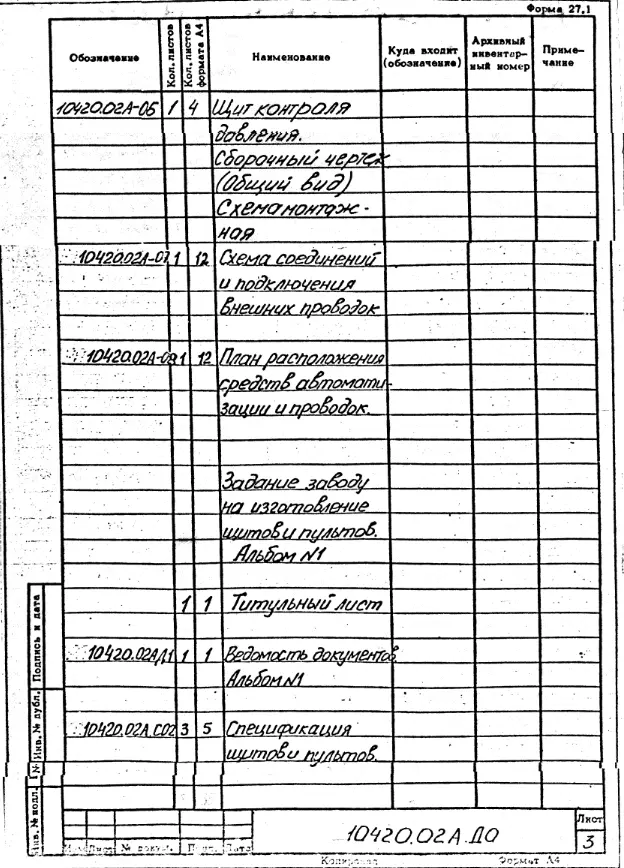 Форма 27.1
Обозначение Кол. листов Кол. листов формата А4 Наименование Куда входит (обозначение) Архивный инвентарный номер Примечание
10420.02А-06 1 4 Щит контроля
довления.
Сборочный чертеж
(Общий вид)
Схема монтаж-
ная
10420.02А-07 1 12 Схема соединений
и подключения
внешних проводок
10420.02А- 1 12 План расположения
средств автомати-
зации и проводок.
Задание заводу
на изготовление
щитов и пультов.
Альбом №1
1 1 Титульный лист
10420.02АД1 1 1 Ведомость документов.
Альбом №1
10420.02А.СО2 3 5 Спецификация
щитов и пультов.
Подпись и дата
Инв. № дубл.
Инв. № подл.
Лист № докум. Подп. Дата
10420.02А.ДО
Лист
3
Копировал Формат А4